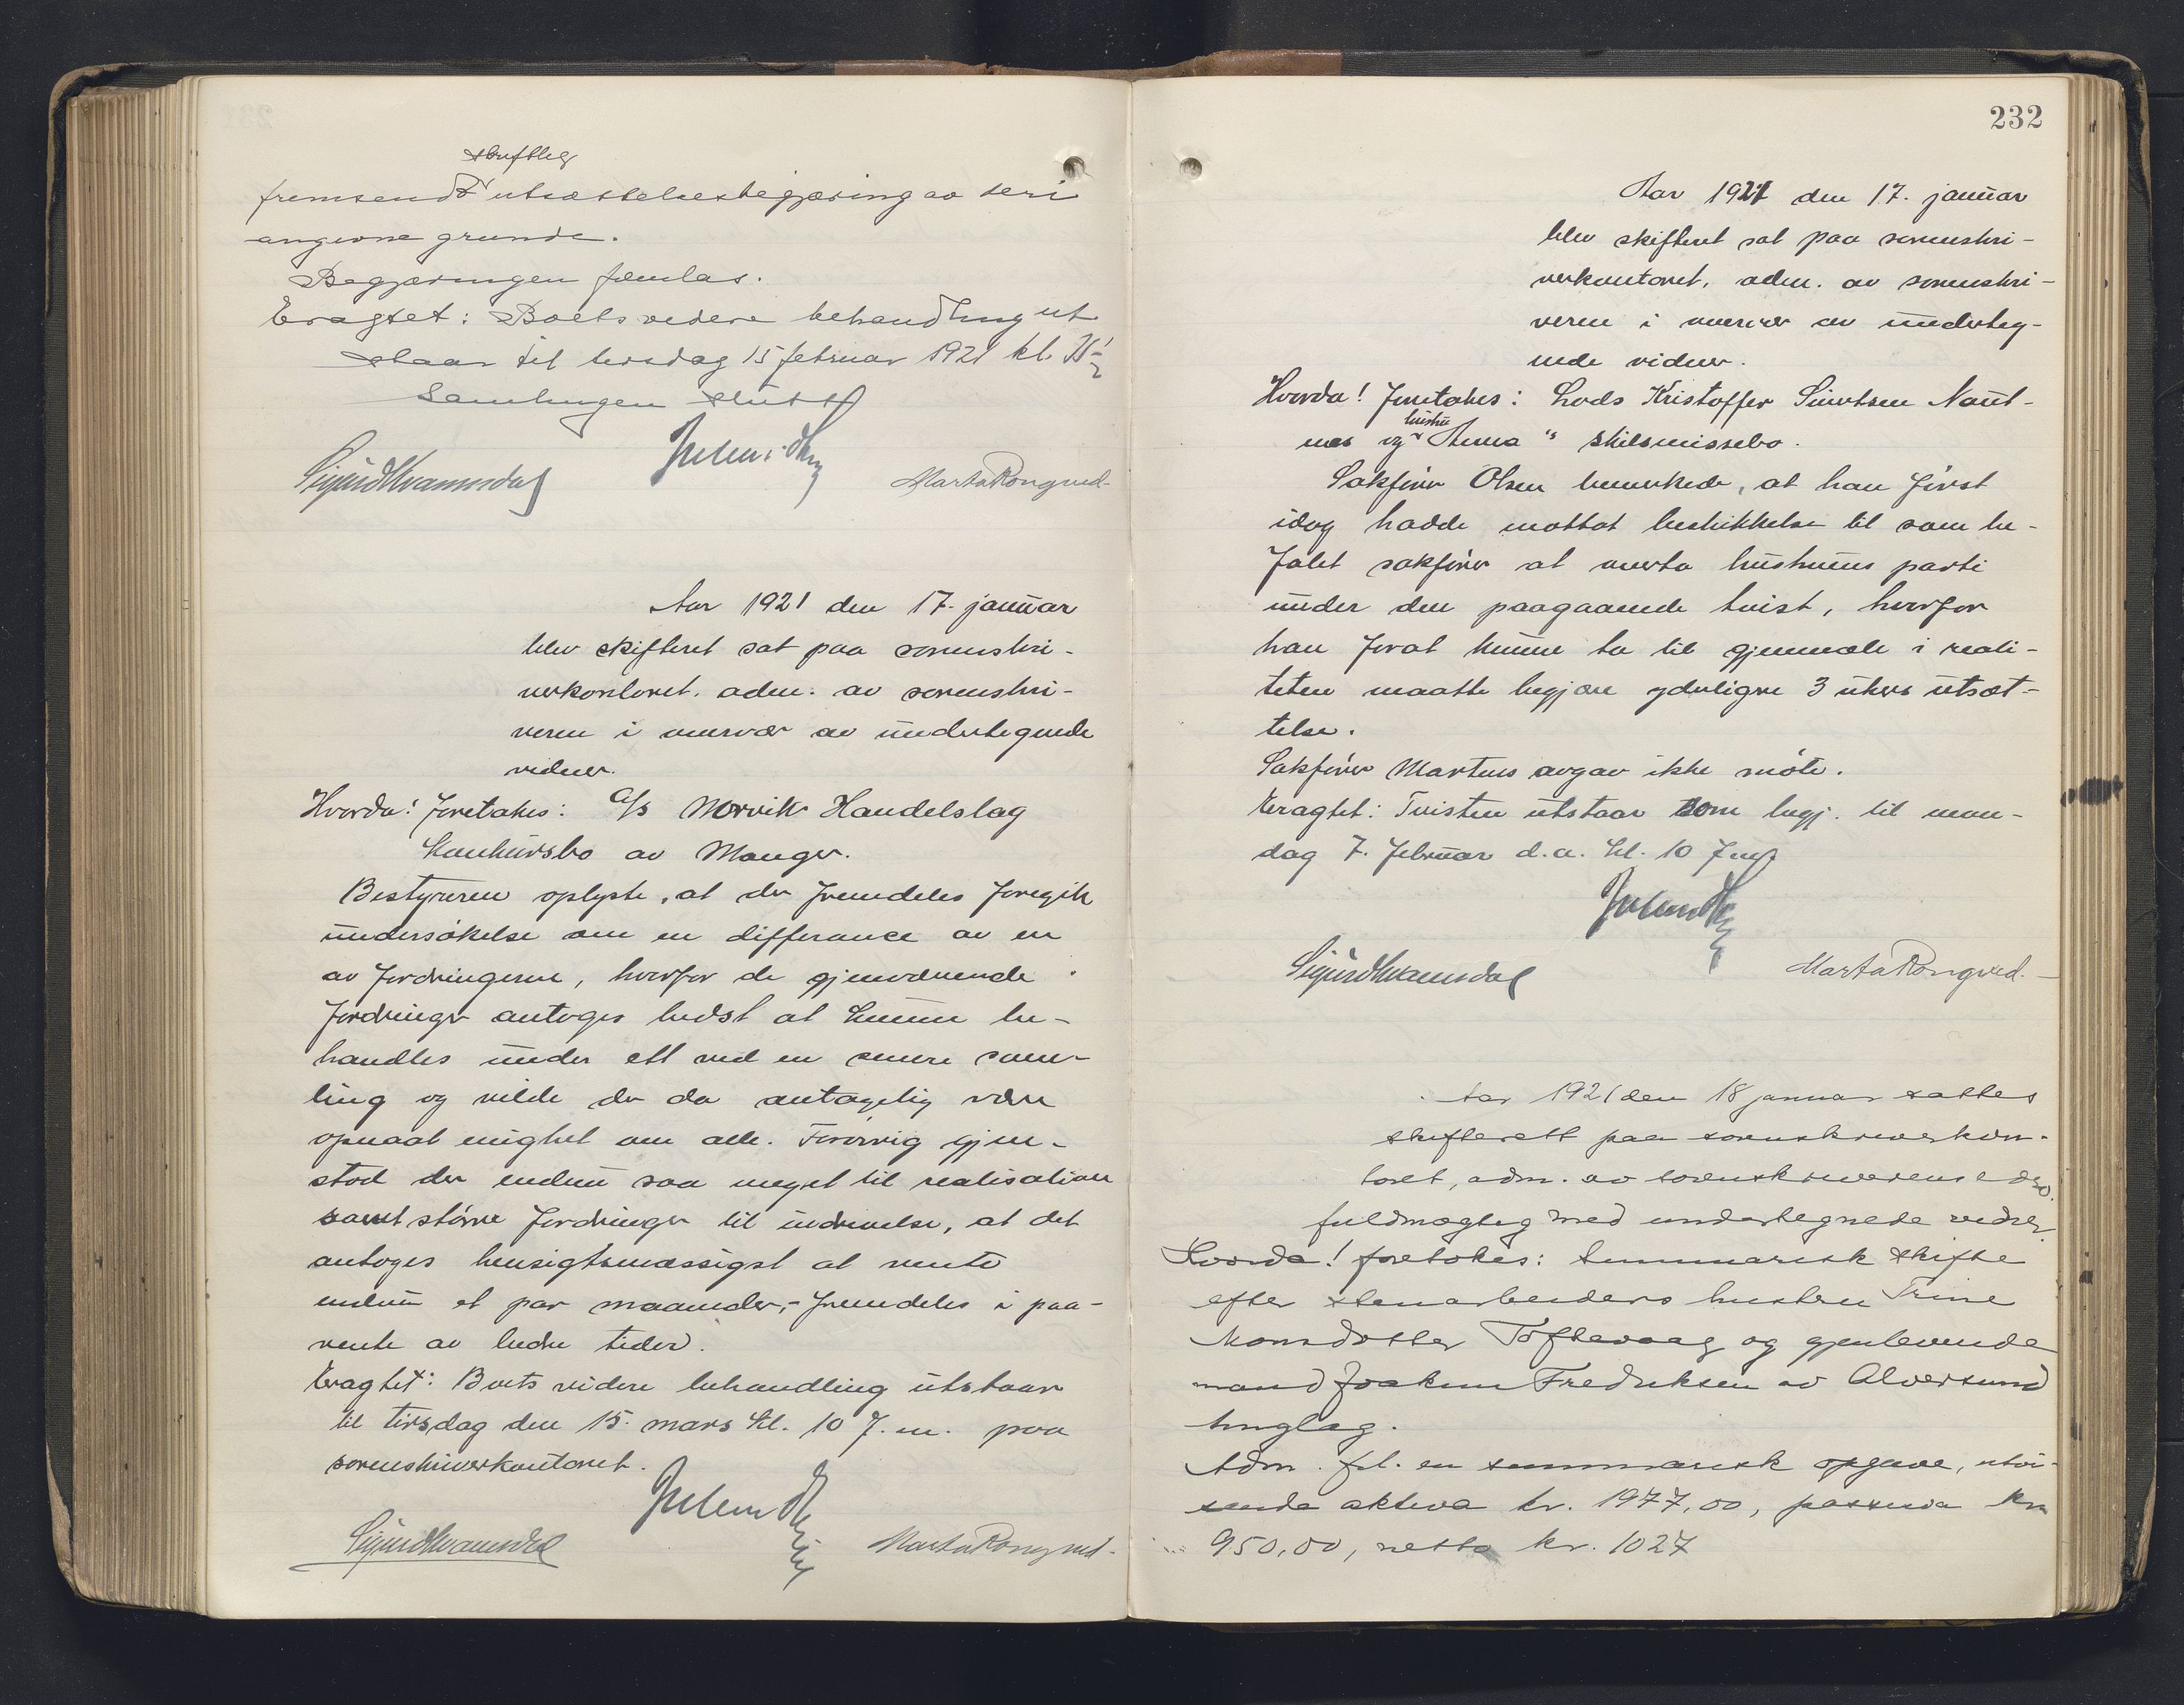 skriftlig
fremsendt utsættelsesbegjæring av deri
angivne grunde.
Begjæringen fremlas.
Eragtet: Boets videre behandling ut
staar til tirsdag 15 februar 1921 kl.
Samlingen slutt
Sigurd Kvamsdal Marta Rongved.
Aar 1921 den 17. januar
blev skifteret sat paa sorenskri-
verkontoret, adm. av sorenskri-
veren i nærvær av undertegnede
vidner.
Hvorda! foretokes: A/S Norvik Handelslag
konkursbo av Manger.
Bestyreren oplyste, at der fremdeles foregik
undersökelse om en differance av en
av fordringerne, hvorfor de gjenværende
fordringer antoges bedst at kunne be-
handles under ett ved en senere sam-
ling og vilde der da antagelig være
opnaat enighet om alle. Forövrig gjen-
stod der endnu saa meget til realisation
samt större fordringer til inddrivelse, at det
antoges hensigtsmæssigst at vente
endnu et par maaneder, - fremdeles i paa-
vente av bedre tider.
Eragtet: Boets videre behandling utstaar
til tirsdag den 15. mars kl. 10 f.m. paa
sorenskriverkontoret.
Sigurd Kvamsdal Marta Rongved.
232
Aar 1921 den 17. januar
blev skifteret sat paa sorenskri-
verkontoret, adm. av sorenskri-
veren i nærvær av underteg-
nede vidner.
Hvorda! foretokes: Lods Kristoffer Sivertsen Naut-
hustru
nes og Anna's skilsmissebo.
Sakförer Olsen bemerkede, at han först
idag hadde mottat beskikkelse til som be-
falet sakförer at ivareta hustruens parti
under den paagaaende tvist, hvorfor
han forat kunne ta til gjenmæle i reali-
teten maatte begjære yderligere 3 ukers utsæt-
telse.
Sakförer Martens avgav ikke möte.
Eragtet: Tvisten utstaar som begj. til man-
dag 7. februar d.a. kl. 10 fm
Sigurd Kvamsdal Marta Rongved.
Aar 1921 den 18 januar sattes
skifterett paa sorenskriverkon-
toret, adm. av sorenskriverens edsv.
fuldmægtig med undertegnede vidner
Hvorda! foretokes: Summarisk skifte
efter stenarbeiders hustru Trine
Monsdotter Toftevaag og gjenlevende
mand Joakim Fredriksen av Alversund
tinglag.
Adm. frl. en summarisk opgave, utvi-
sende aktiva kr. 1977,00, passiva kr
950,00, netto kr. 1027